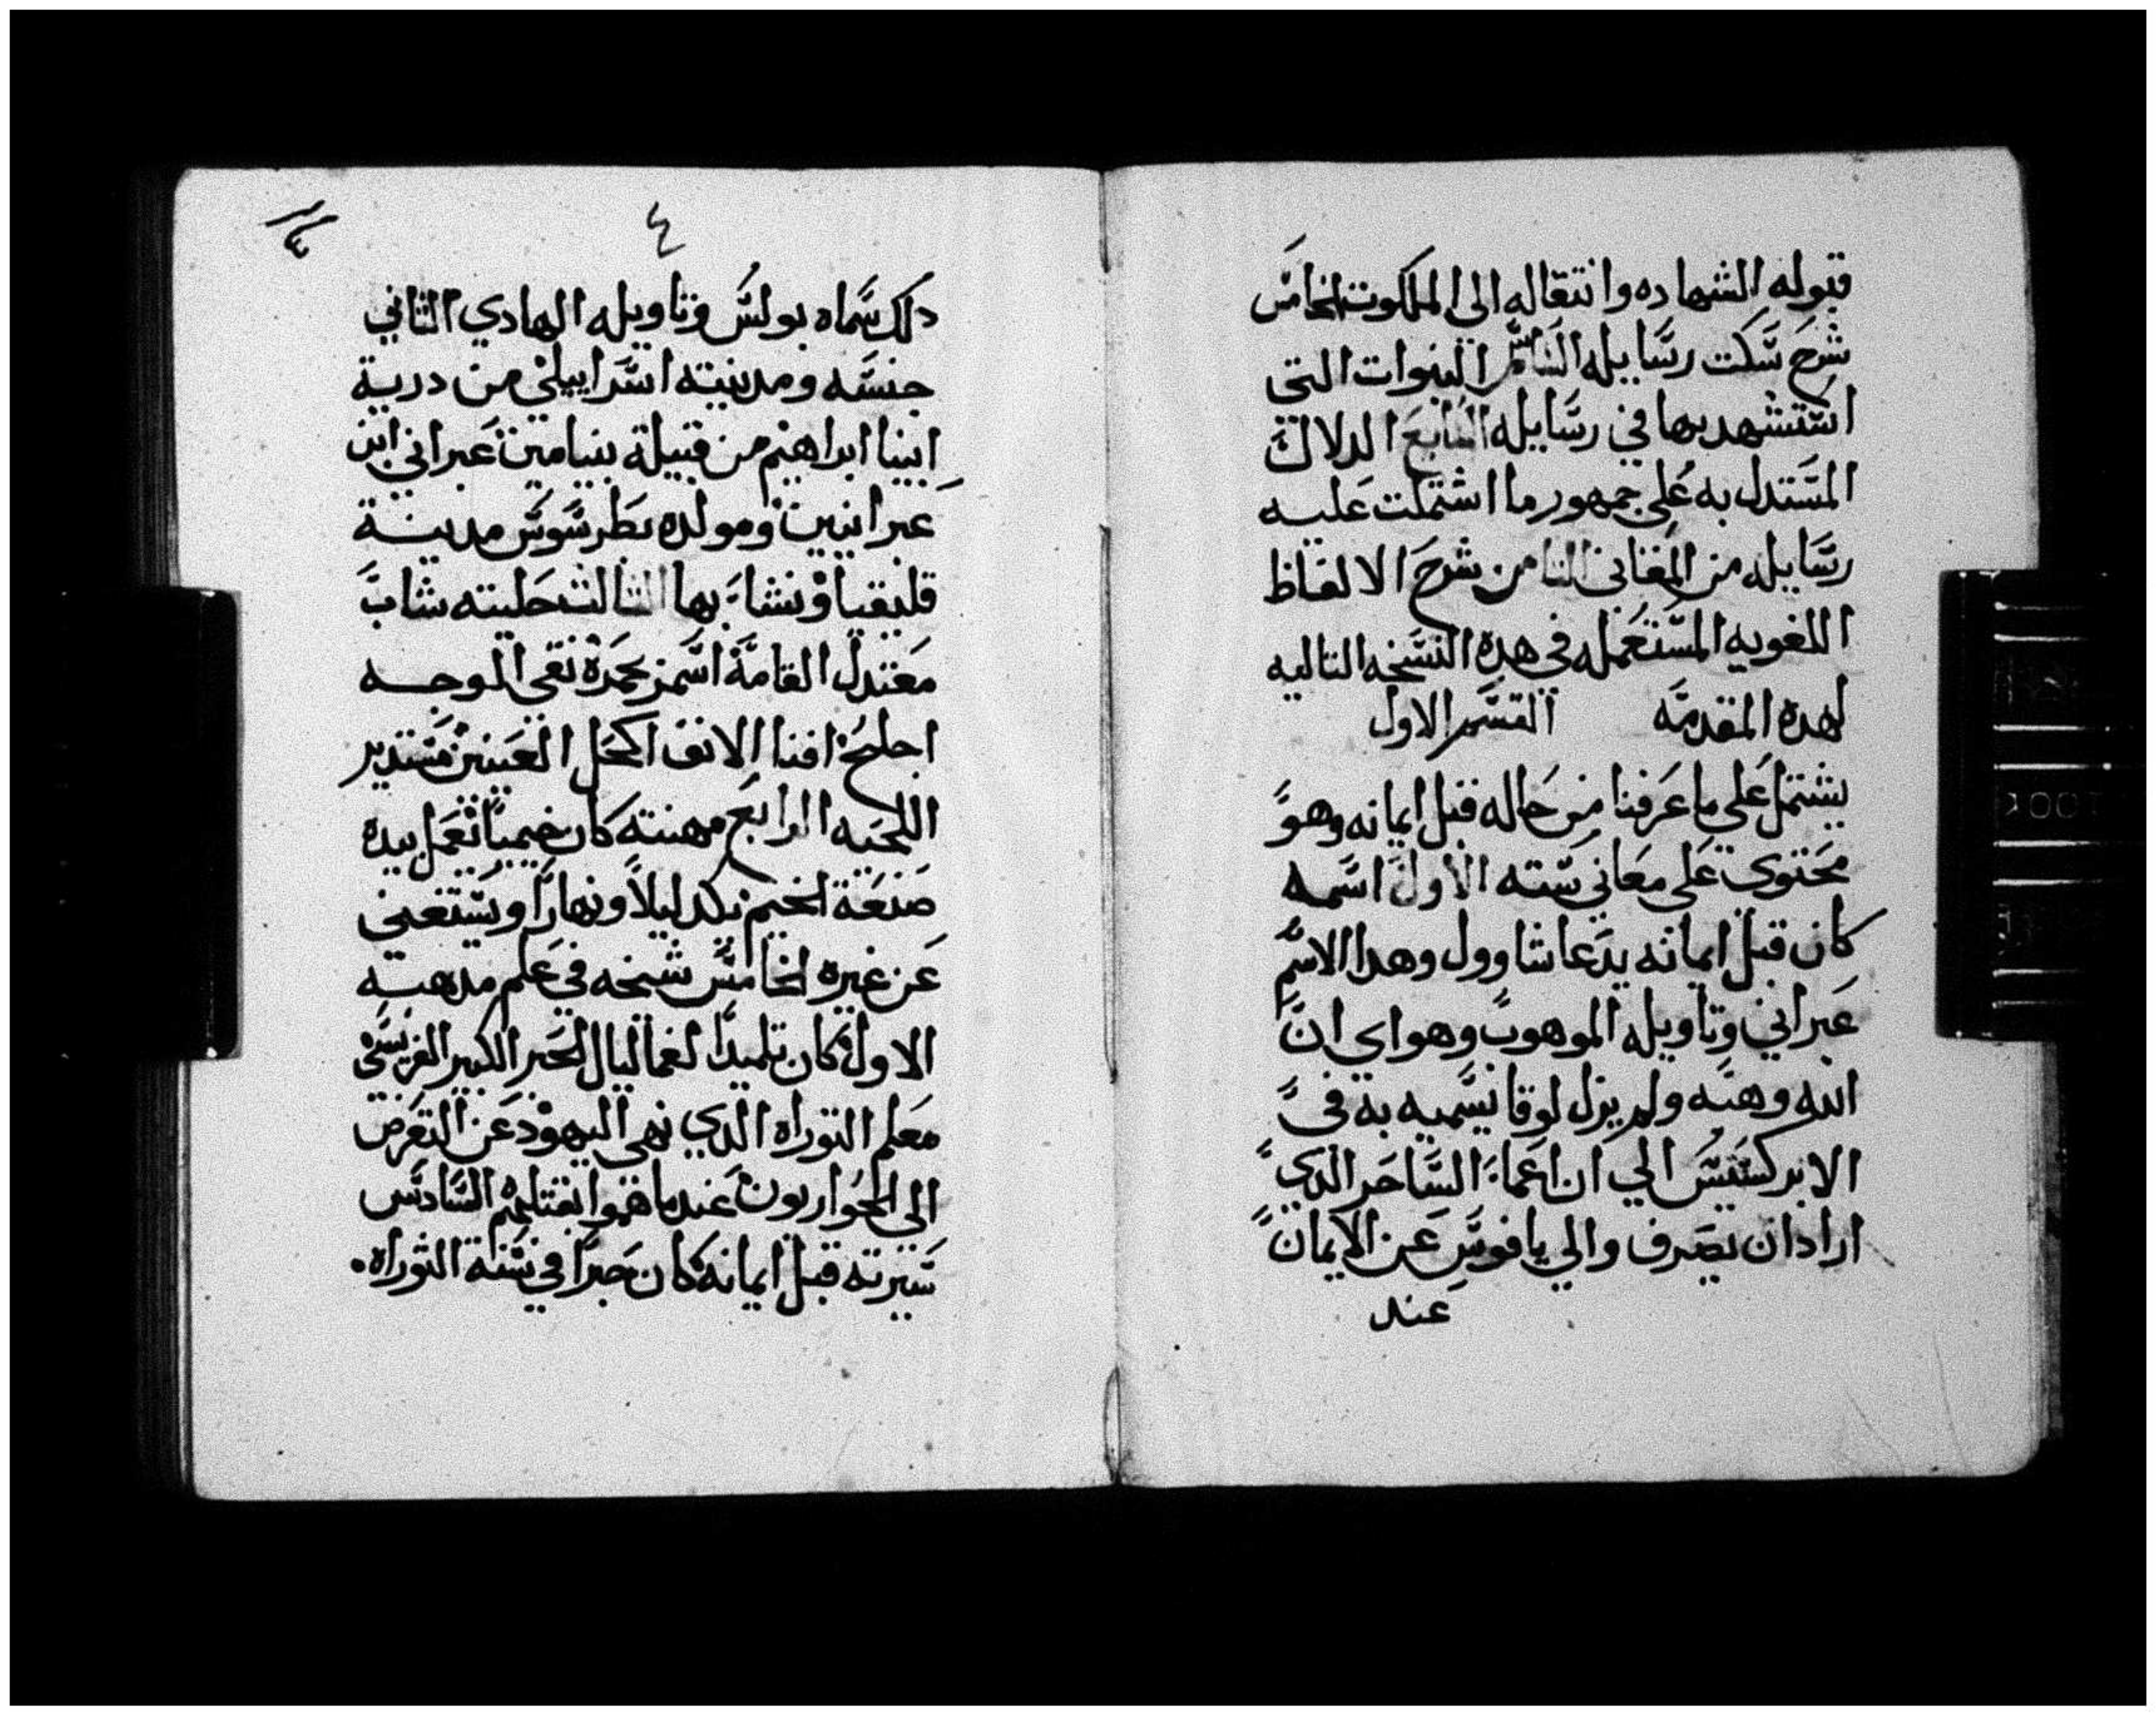 قبوله الشهاده وانتقاله الى الملكوت الخامس
شرح سكت رسايله السادس النبوات التي
استشهد بها في رسايله السابع الدلاله
المستدل به على جمهور ما اشتملت عليه
رسايله من المعاني الثامن شرح الالفاظ
اللغويه المستعمله في هده النسخه التاليه
لهده المقدمه القسم الاول
يشتمل على ما عرفنا من حاله قبل ايمانه وهو
محتوي على معاني سته الاول اسمه
كان قبل ايمانه يدعا شاوول وهدا الاسم
عبراني وتاويله الموهوب وهو اي ان
الله وهبه ولم يزل لوقا يسميه به في
الابركسيس الي ان اعما الساحر الدي
اراد ان يصرف والي يافوس عن الايمان
عند
٤
٤
دلك سماه بولس وتاويله الهادي الثاني
جنسه ومدينته اسراييلي من درية
ابينا ابراهيم من قبيلة بنيامين عبراني ابن
عبرانيين ومولده بطرسوس مدينة
قليقيا ونشا بها الثالث حليته شاب
معتدل القامة اسمر بحمرة نقي الوجه
اجلح اقنا الانف اكحل العينين مستدير
اللحيه الرابع مهنته كان خيميا يعمل بيده
صنعة الخيم بكد ليلا ونهارا ويستغني
عن غيره الخامس شيخه في علم مدهبه
الاول كان تلميدا لغماليال الحبر الكبير الفريسي
معلم التوراه الدي نهى اليهود عن التعرض
الى الحواريون عندما هموا بقتلهم السادس
سيرته قبل ايمانه كان حبرا في سنة التوراه.